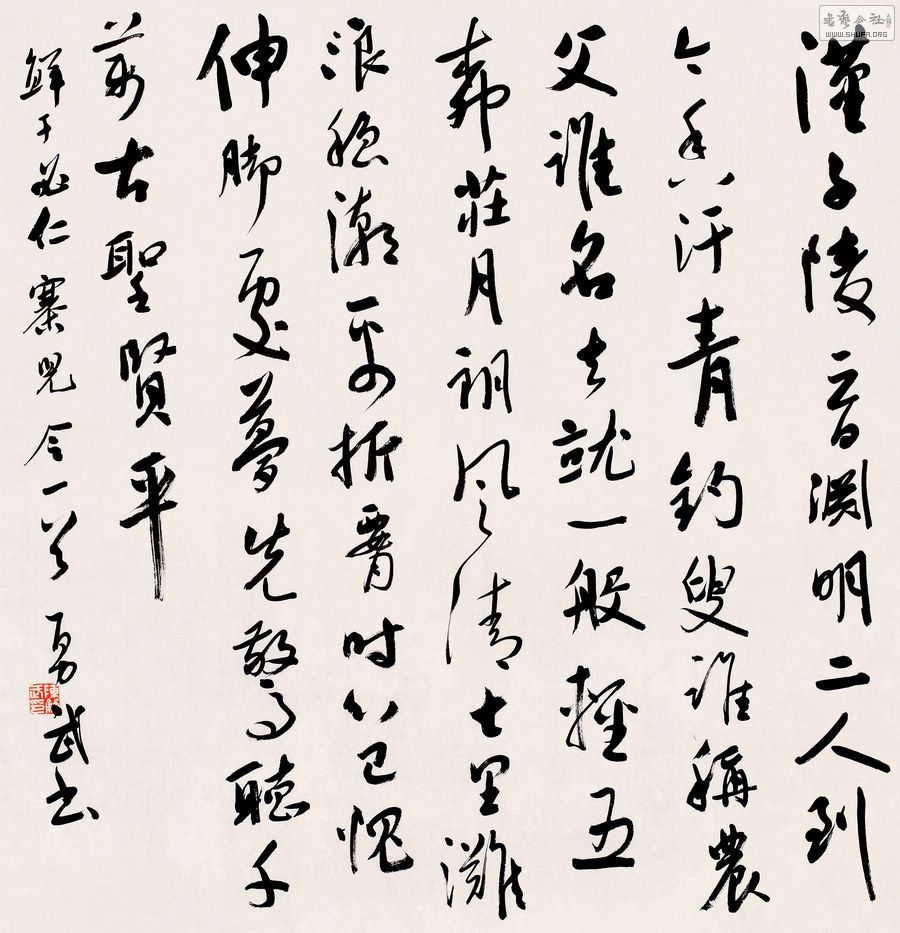 漢子陵晉淵明二人到
今香汗青釣叟誰稱農
父誰名去就一般輕五
柳莊月朗風清七里灘
浪穩潮平折腰時心已愧
伸脚處夢先驚聽千
萬古聖賢評
鮮于必仁寨兒令一首 勇武書
書藝公社
WWW.SHUFA.ORG